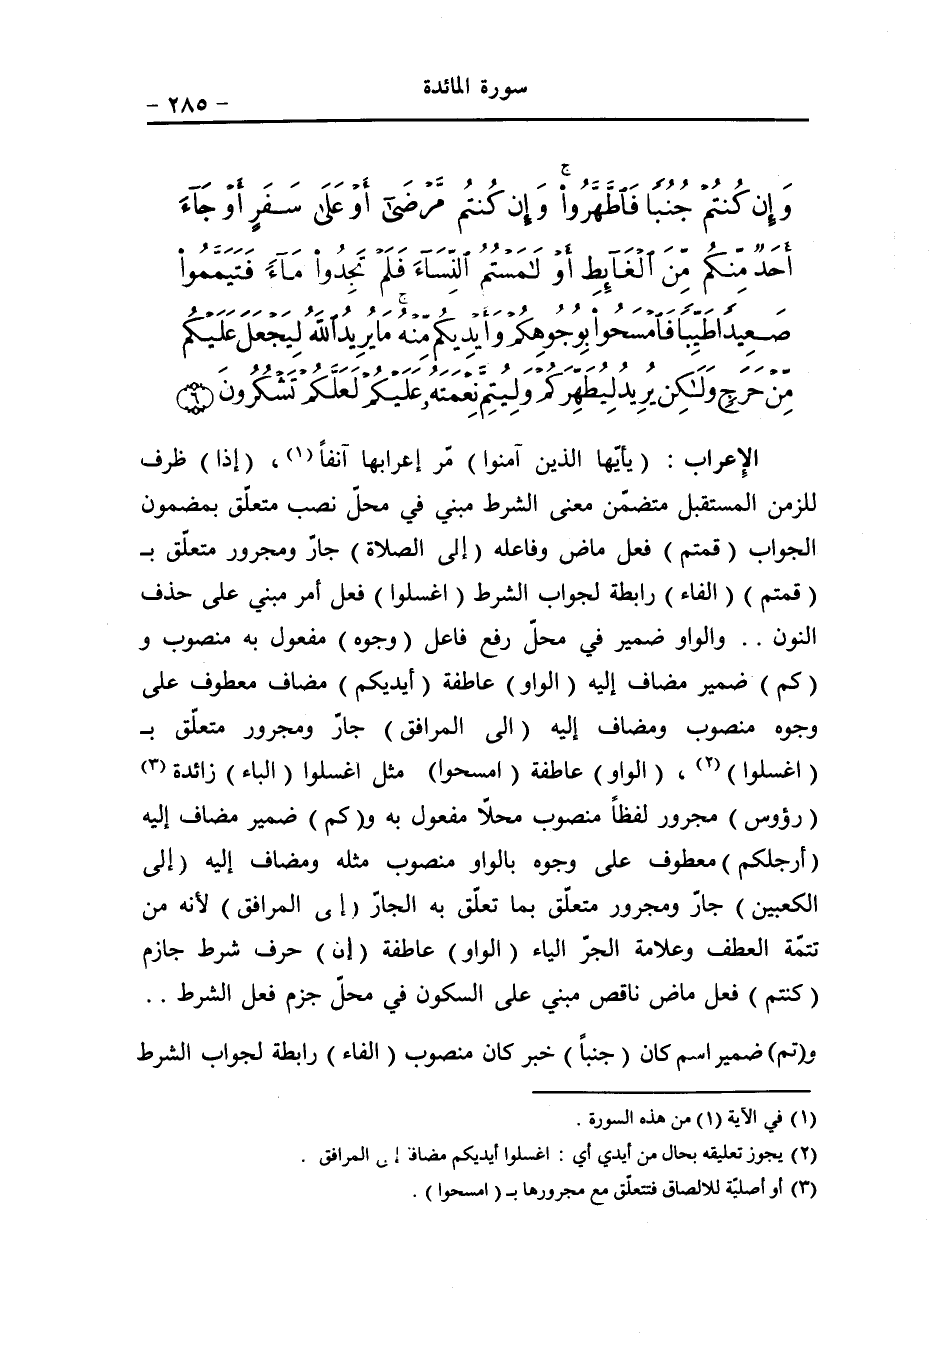 سورة المائدة
- ٢٨٥ -
وَإِن كُنتُمْ جُنُبًا فَٱطَّهَّرُوا۟ ۚ وَإِن كُنتُم مَّرْضَىٰٓ أَوْ عَلَىٰ سَفَرٍ أَوْ جَآءَ
أَحَدٌ مِّنكُم مِّنَ ٱلْغَآئِطِ أَوْ لَـٰمَسْتُمُ ٱلنِّسَآءَ فَلَمْ تَجِدُوا۟ مَآءً فَتَيَمَّمُوا۟
صَعِيدًا طَيِّبًا فَٱمْسَحُوا۟ بِوُجُوهِكُمْ وَأَيْدِيكُم مِّنْهُ ۚ مَا يُرِيدُ ٱللَّهُ لِيَجْعَلَ عَلَيْكُم
مِّنْ حَرَجٍ وَلَـٰكِن يُرِيدُ لِيُطَهِّرَكُمْ وَلِيُتِمَّ نِعْمَتَهُۥ عَلَيْكُمْ لَعَلَّكُمْ تَشْكُرُونَ ﴿٦﴾
الإعراب : ( يأيّها الذين آمنوا ) مّر إعرابها آنفاً (١) ، ( إذا ) ظرف
للزمن المستقبل متضمّن معنى الشرط مبني في محلّ نصب متعلّق بمضمون
الجواب ( قمتم ) فعل ماض وفاعله ( إلى الصلاة ) جارّ ومجرور متعلّق بـ
( قمتم ) ( الفاء ) رابطة لجواب الشرط ( اغسلوا ) فعل أمر مبني على حذف
النون . . والواو ضمير في محلّ رفع فاعل ( وجوه ) مفعول به منصوب و
( كم ) ضمير مضاف إليه ( الواو ) عاطفة ( أيديكم ) مضاف معطوف على
وجوه منصوب ومضاف إليه ( الى المرافق ) جارّ ومجرور متعلّق بـ
( اغسلوا ) (٢) ، ( الواو ) عاطفة ( امسحوا) مثل اغسلوا ( الباء ) زائدة (٣)
( رؤوس ) مجرور لفظاً منصوب محلّا مفعول به و( كم ) ضمير مضاف إليه
( أرجلكم ) معطوف على وجوه بالواو منصوب مثله ومضاف إليه ( إلى
الكعبين ) جارّ ومجرور متعلّق بما تعلّق به الجارّ ( إ ى المرافق ) لأنه من
تتمّة العطف وعلامة الجرّ الياء ( الواو ) عاطفة ( إن ) حرف شرط جازم
( كنتم ) فعل ماض ناقص مبني على السكون في محلّ جزم فعل الشرط . .
و(تم) ضمير اسم كان ( جنباً ) خبر كان منصوب ( الفاء ) رابطة لجواب الشرط
(١) في الآية (١) من هذه السورة .
(٢) يجوز تعليقه بحال من أيدي أي : اغسلوا أيديكم مضافة إ ى المرافق .
(٣) أو أصليّة للالصاق فتتعلّق مع مجرورها بـ ( امسحوا ) .